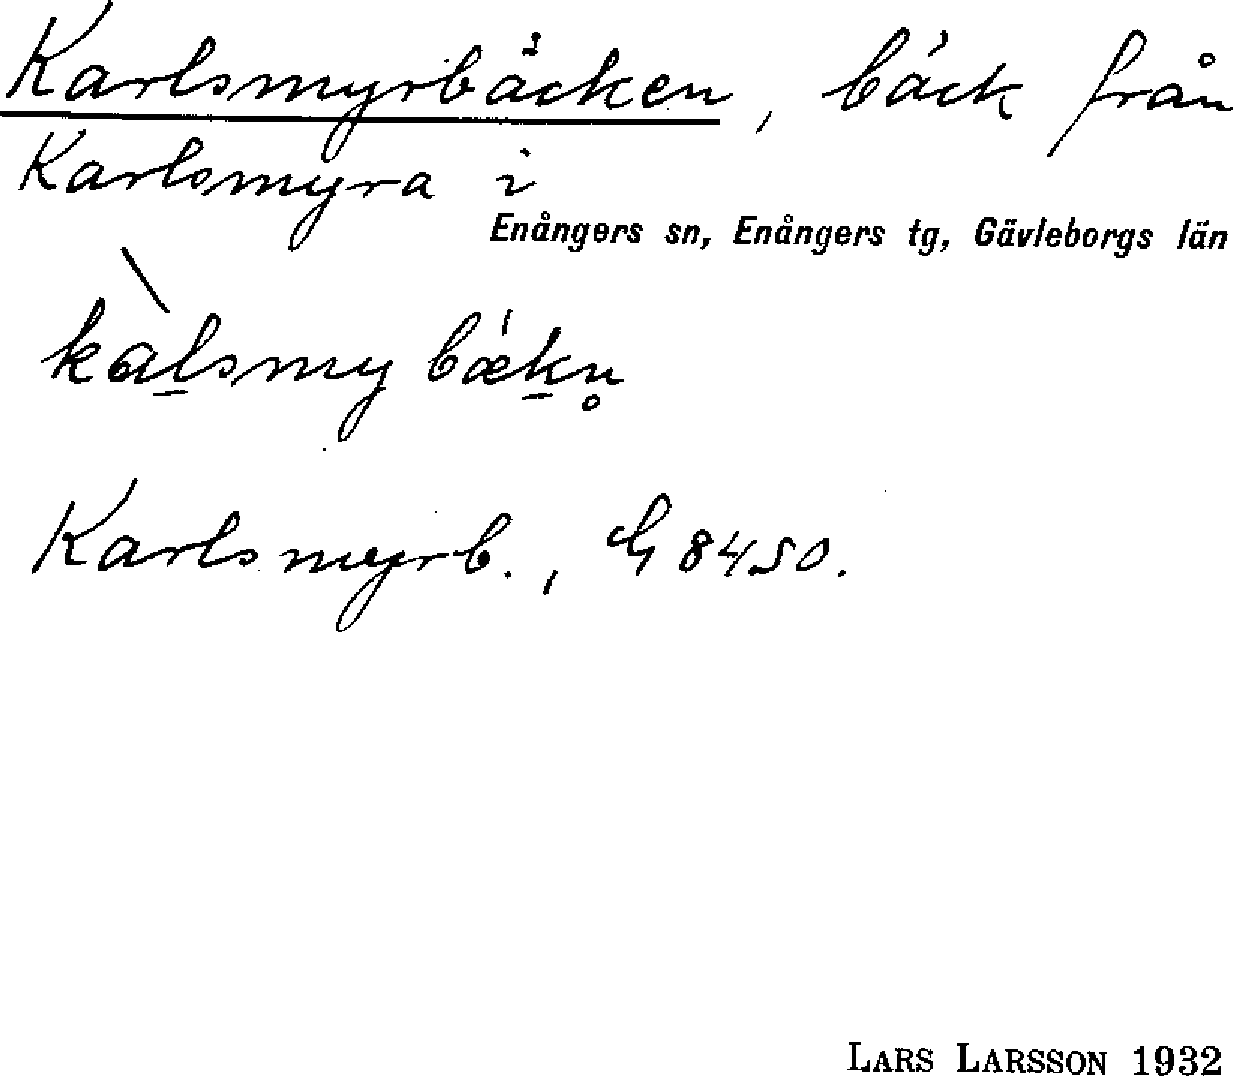 Karlsmyrbäcken, bäck från
Karlsmyra i
Enångers sn, Enångers tg, Gävleborgs län
kàl̠smy bǽk̠n̥
Karlsmyrb., G 8450.
LARS LARSSON 1932